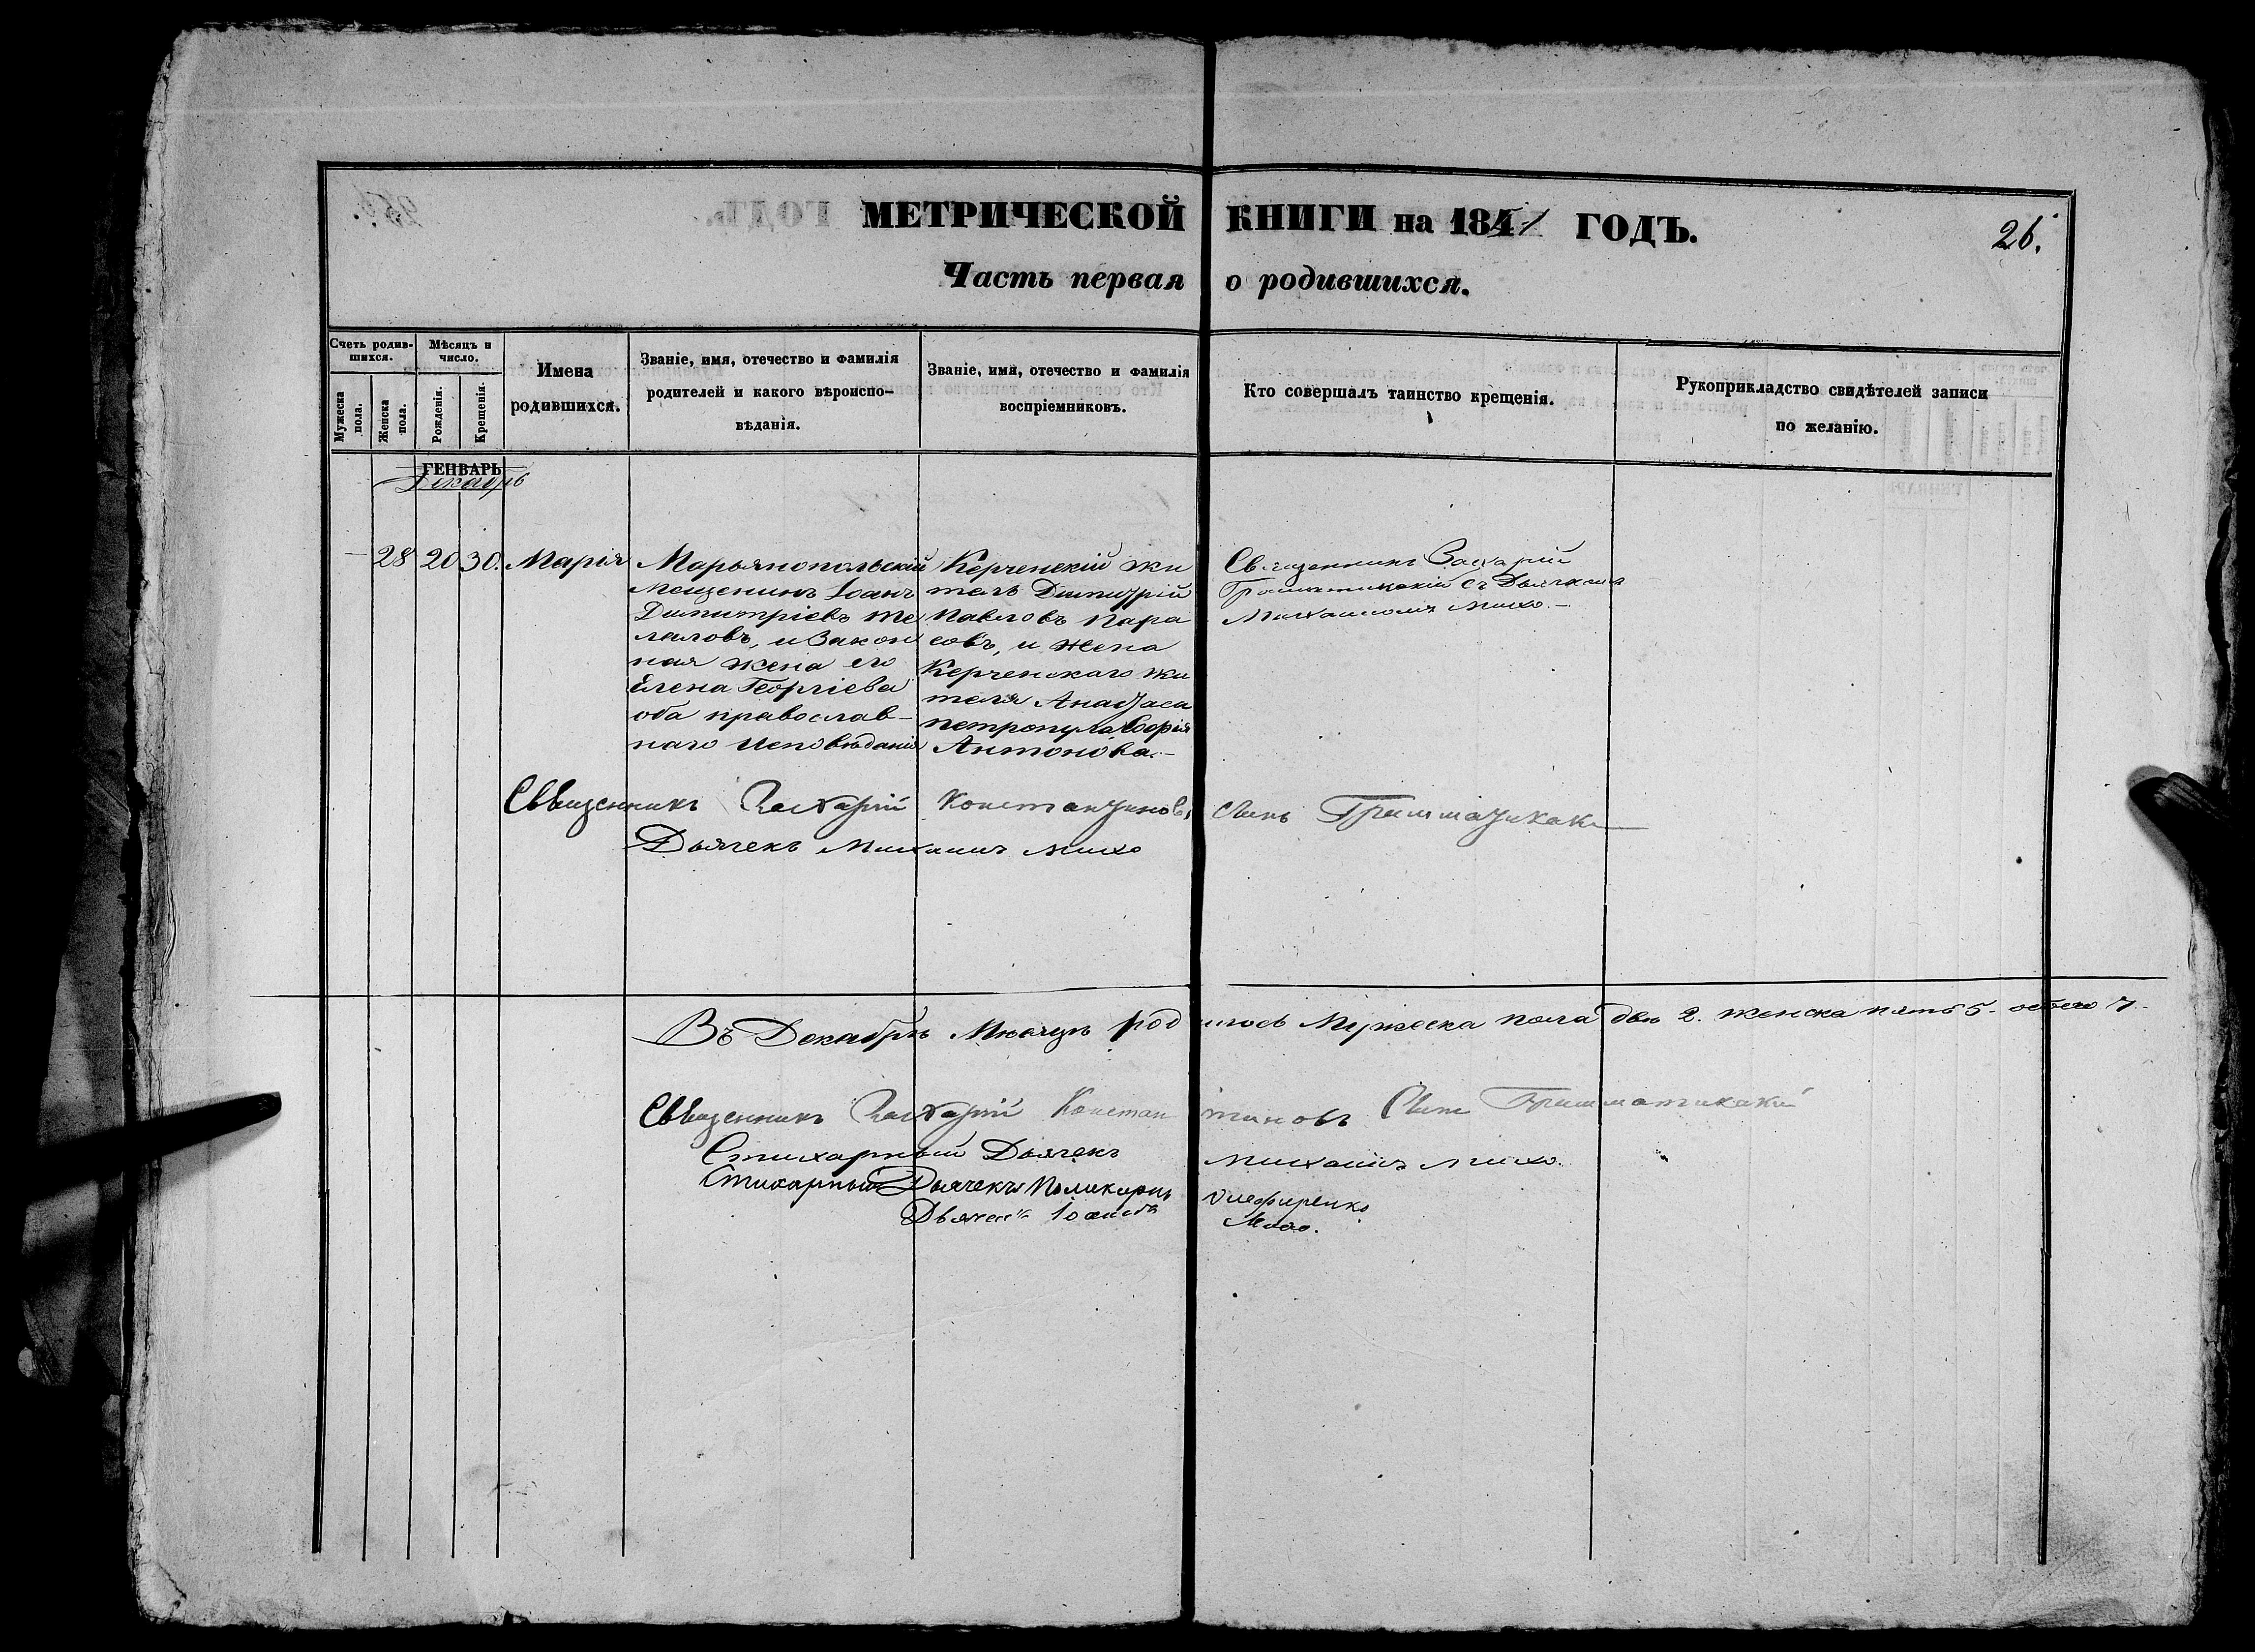 МЕТРИЧЕСКОЙ КНИГИ на 1841 ГОДЪ.
26.
Часть первая о родившихся.
Счетъ родившихся.
Мужеска пола.
Женска пола.
Мѣсяцъ и число.
Рожденія.
Крещенія.
Имена родившихся.
Званіе, имя, отечество и фамилія
родителей и какого вѣроиспо-
вѣданія.
Званіе, имя, отечество и фамилія
воспріемниковъ.
Кто совершалъ таинство крещенія.
Рукоприкладство свидѣтелей записи
по желанію.
ГЕНВАРЬ
Декабрь
28 20 30. Марія
Марьянопольскій
Мещенинъ Іоанъ
Димитріевъ Те
лаловъ, и Закон
ная жена его
Елена Георгіева
оба православ-
наго Исповѣданія
Керченскій жи
тель Димитрій
Павловъ Пара
совъ, и жена
Керченскаго жи
теля Анастаса
Петропула Софія
Антонова.-
Священникъ Захарій
Грамматикакій съ Дьячкомъ
Михаиломъ Михо.-
Священникъ Захарій Константиновъ Сынъ Грамматикаки
Дьячекъ Михаилъ Михо
Въ Декабрѣ Мѣсяцѣ родилось Мужеска пола двѣ 2. женска пять 5. обоего 7.
Священникъ Захарій Константиновъ Сынъ Грамматикакій
Стихарный Дьячекъ Михаилъ Михо.
Стихарный Дьячекъ Поликарпъ Олефиренко
Дьячекъ Михо.